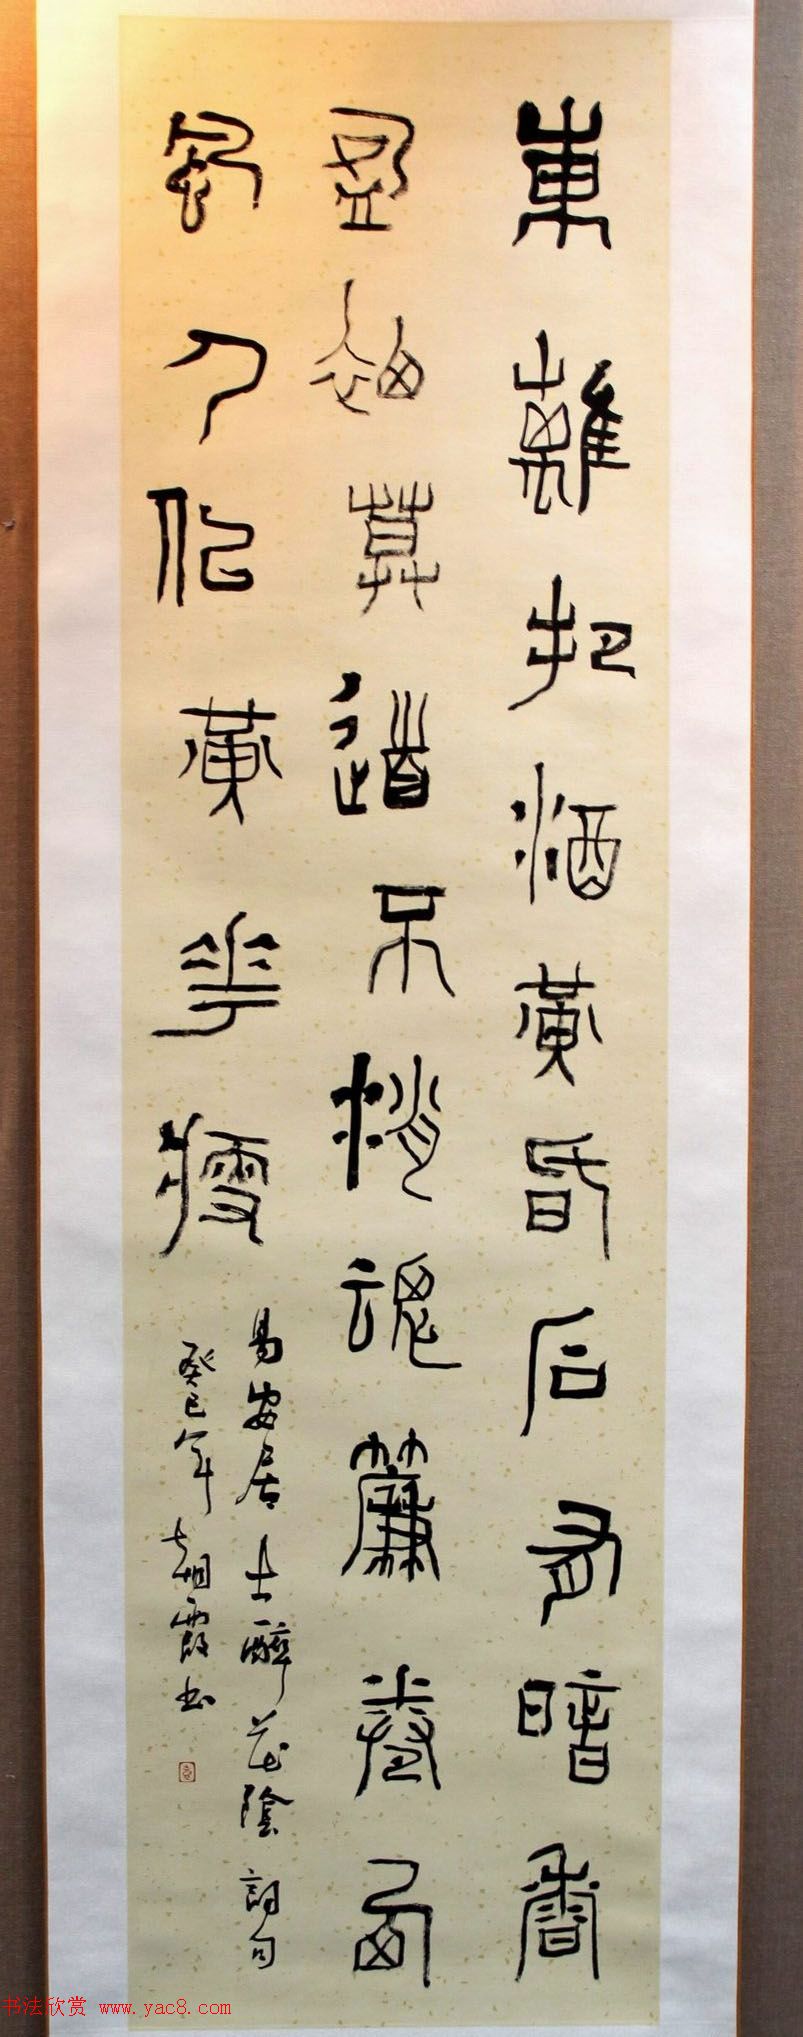 東離把酒黄昏后有暗香
盈袖莫道不銷魂簾捲西
風人似黄花瘦
易安居士醉花陰詞句
癸巳年朝霞书
书法欣赏 www.yac8.com